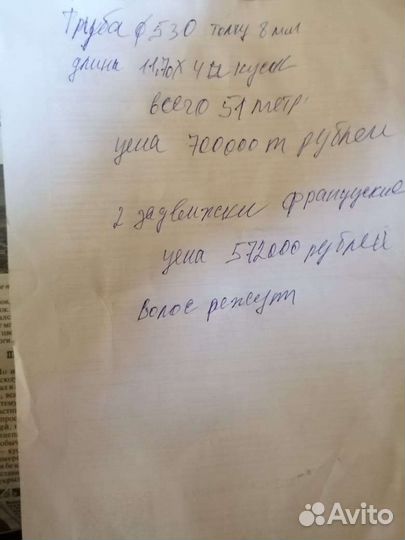 Труба ф 530 толщ 8 мм
длина 11,70 х 4 кусок
всего 51 метр
цена 700000 т рублей
2 задвижки французские
цена 572000 рублей
Avito